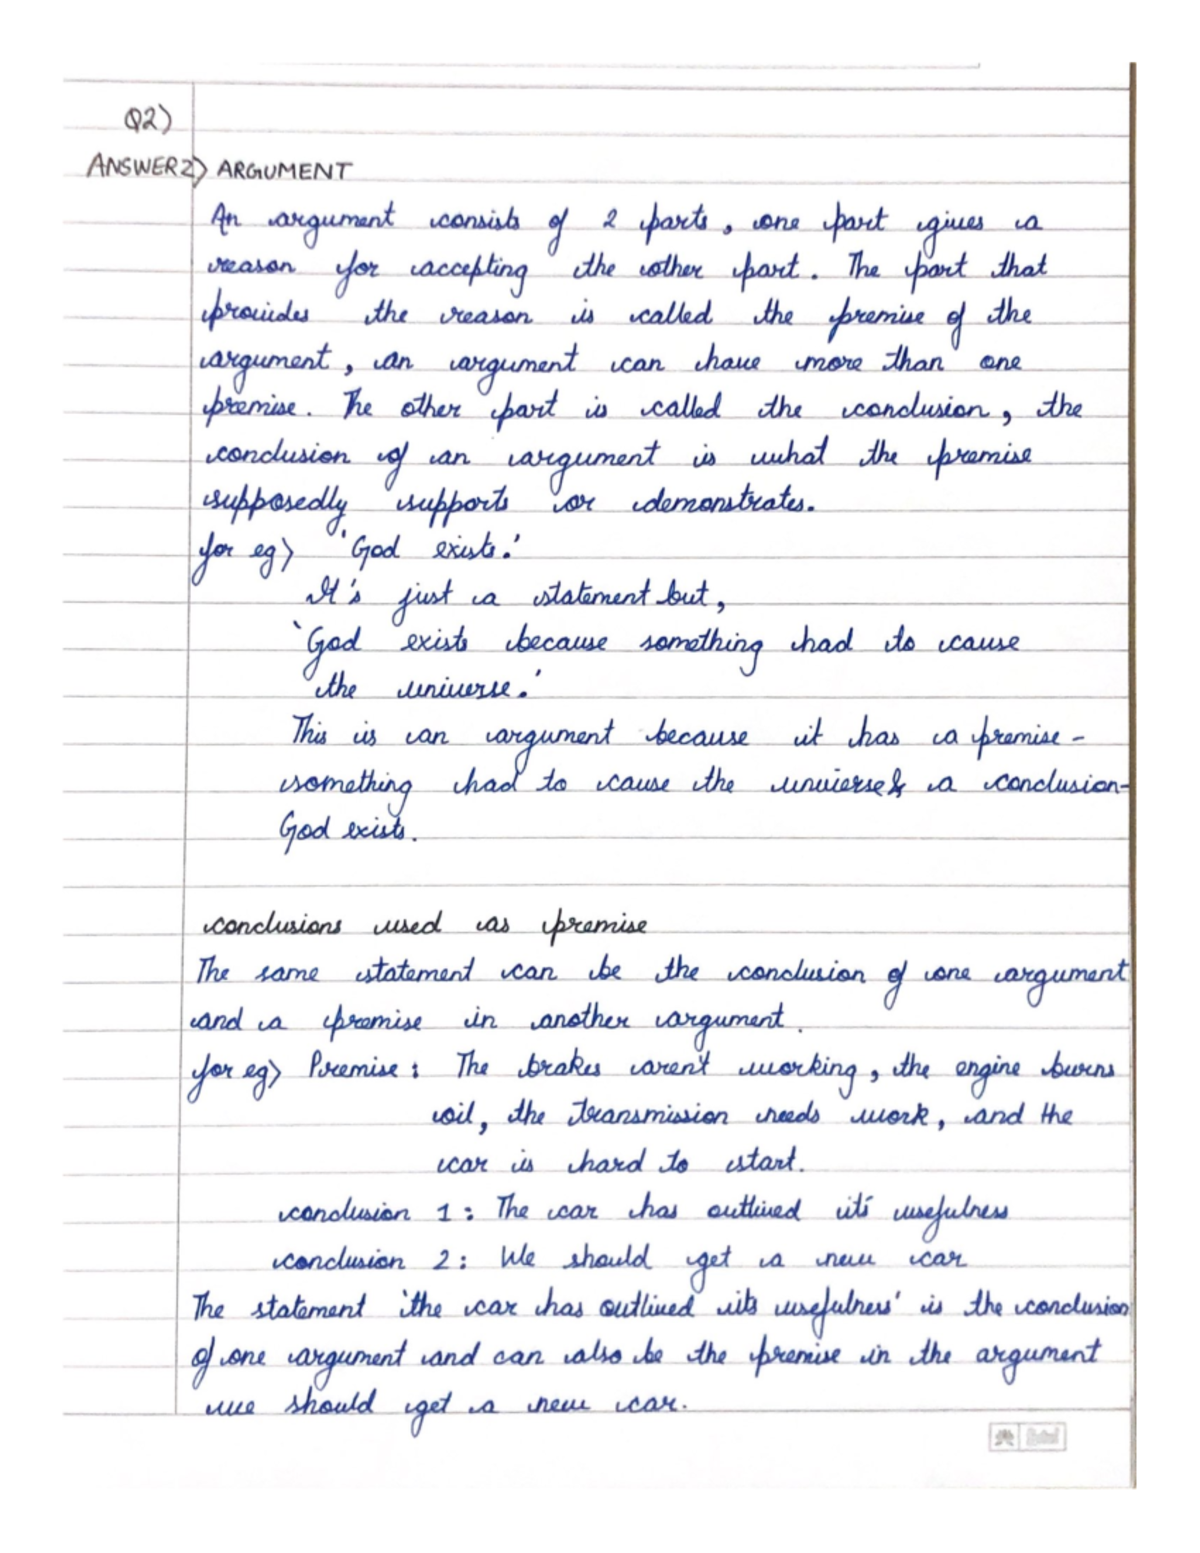 Q2)
ANSWER2) ARGUMENT
An argument consists of 2 parts, one part gives a
reason for accepting the other part. The part that
provides the reason is called the premise of the
argument, an argument can have more than one
premise. The other part is called the conclusion, the
conclusion of an argument is what the premise
supposedly supports or demonstrates.
for eg) 'God exists.'
It's just a statement but,
'God exists because something had to cause
the universe.'
This is an argument because it has a premise -
something had to cause the universe & a conclusion-
God exists.
conclusions used as premise
The same statement can be the conclusion of one argument
and a premise in another argument.
for eg) Premise: The brakes aren't working, the engine burns
oil, the transmission needs work, and the
car is hard to start.
conclusion 1: The car has outlived its' usefulness
conclusion 2: We should get a new car
The statement 'the car has outlived its usefulness' is the conclusion
of one argument and can also be the premise in the argument
we should get a new car.